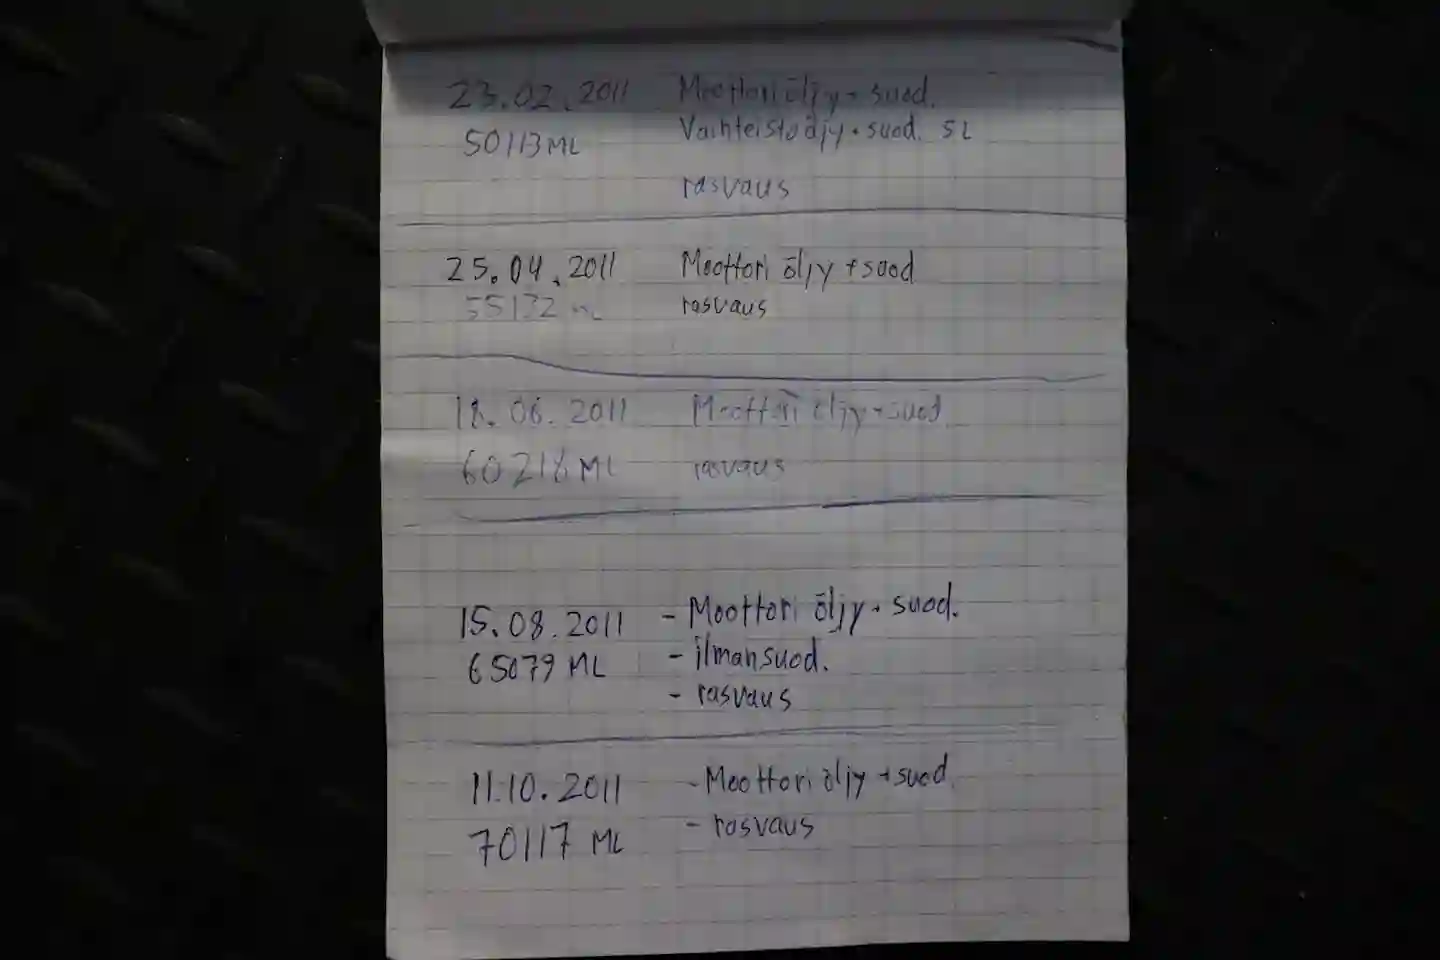 23.02.2011 Moottori öljy + suod.
50113 ML Vaihteisto öljy + suod. 5L
rasvaus
25.04.2011 Moottori öljy + suod
55132 ML rasvaus
18.06.2011 Moottori öljy + suod.
60218 ML rasvaus
15.08.2011 - Moottori öljy + suod.
65079 ML - ilmansuod.
- rasvaus
11.10.2011 - Moottori öljy + suod.
70117 ML - rasvaus